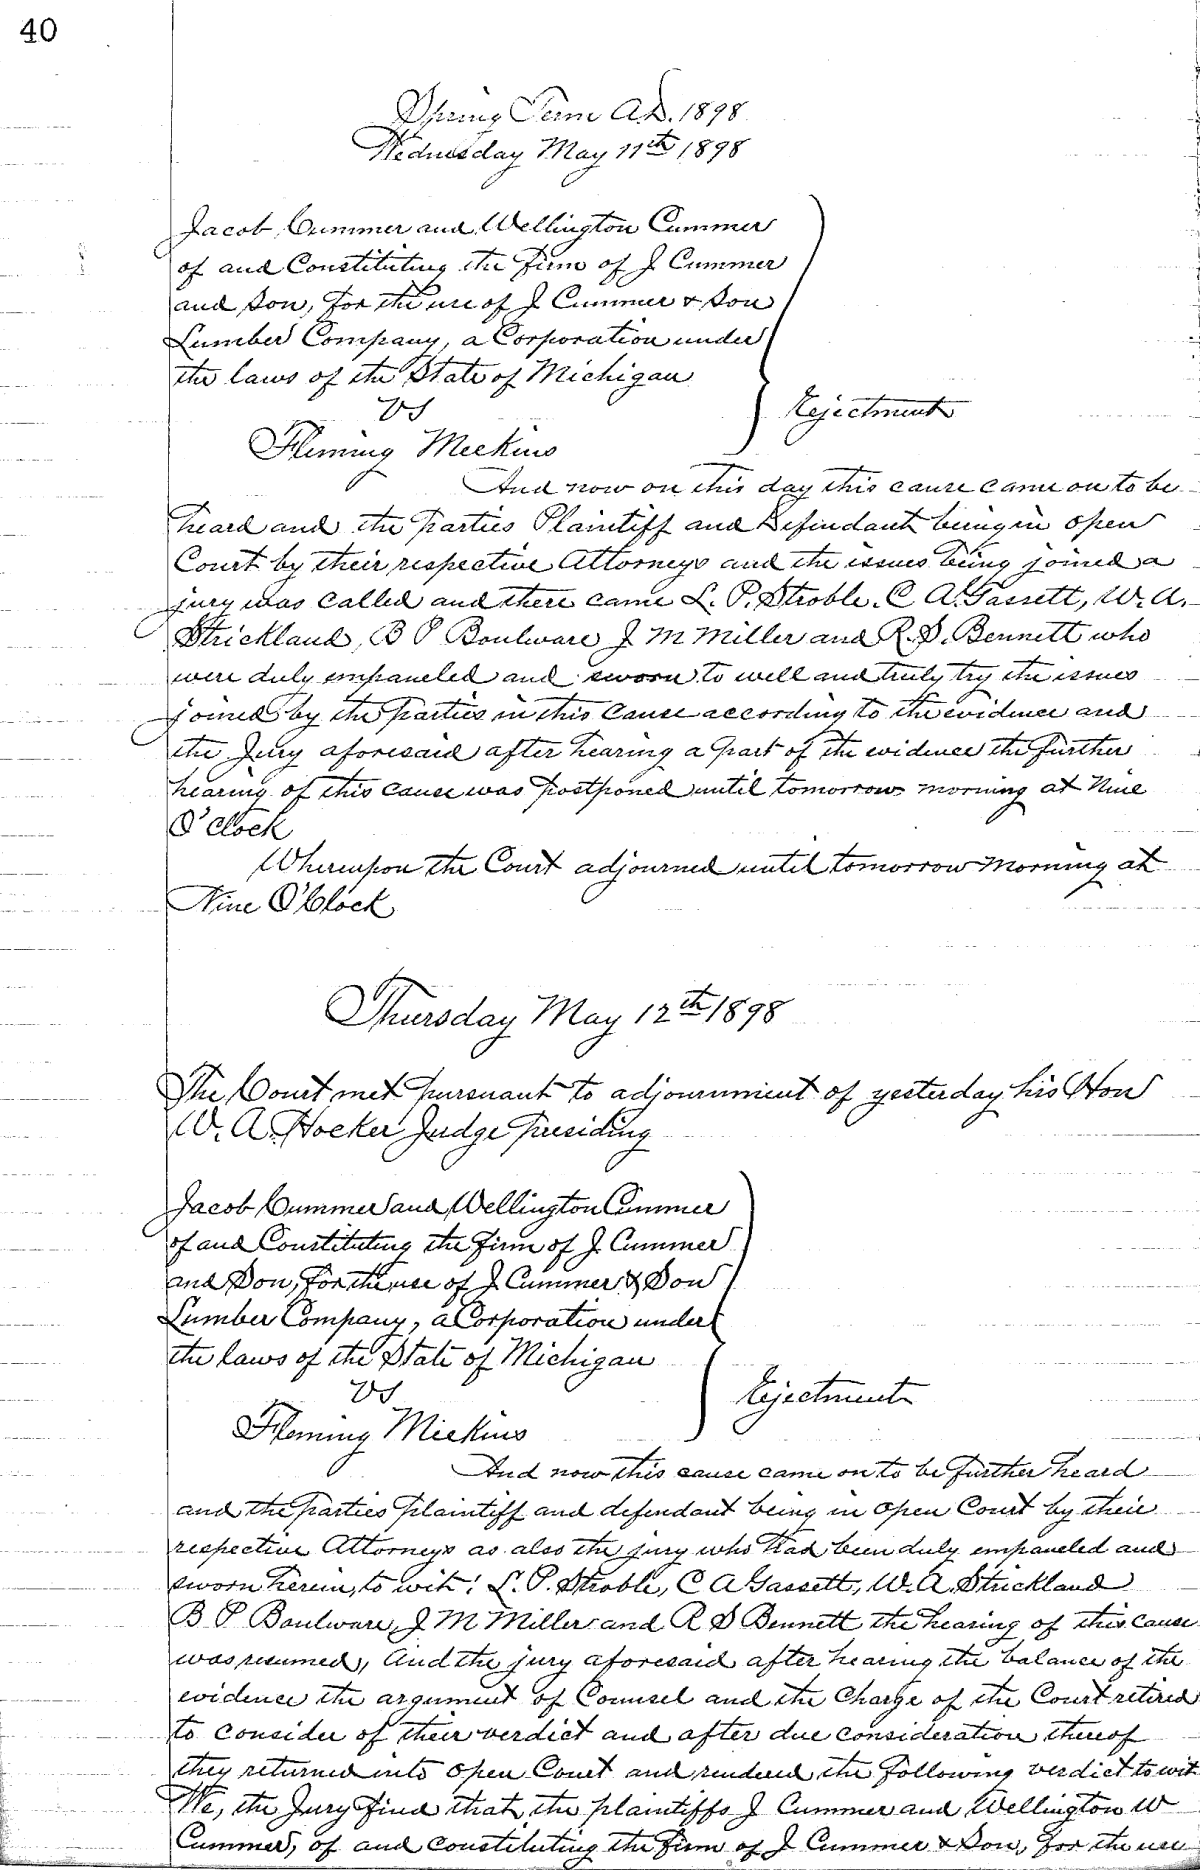 40
Spring Term A.D. 1898
Wednesday May 11th 1898
Jacob Cummer and Wellington Cummer
of and Constituting the firm of J Cummer
and Son, for the use of J Cummer & Son
Lumber Company, a Corporation under
the laws of the State of Michigan
vs
Ejectment
Fleming Meekins
And now on this day this cause came on to be
heard and the parties Plaintiff and Defendant being in open
Court by their respective Attorneys and the issues being joined a
jury was called and there came L. P. Stroble, C A. Gassett, W. A.
Strickland, B P Boulware J M Miller and R. S. Bennett who
were duly empaneled and sworn to well and truly try the issues
joined by the parties in this cause according to the evidence and
the Jury aforesaid after hearing a part of the evidence the further
hearing of this cause was postponed until tomorrow morning at Nine
O'Clock
Whereupon the Court adjourned until tomorrow morning at
Nine O'Clock
Thursday May 12th 1898
The Court met pursuant to adjournment of yesterday his Hon
W. A. Hocker Judge Presiding
Jacob Cummer and Wellington Cummer
of and Constituting the firm of J. Cummer
and Son, for the use of J. Cummer & Son
Lumber Company, a Corporation under
the laws of the State of Michigan
vs
Ejectment
Fleming Meekins
And now this cause came on to be further heard
and the parties plaintiff and defendant being in open Court by their
respective Attorneys as also the jury who had been duly empaneled and
sworn herein, to wit: L. P. Stroble, C A Gassett, W. A. Strickland
B P Boulware, J M Miller and R S Bennett the hearing of this cause
was resumed, And the jury aforesaid after hearing the balance of the
evidence the argument of Counsel and the Charge of the Court retired
to consider of their verdict and after due consideration thereof
they returned into open Court and rendered the following verdict to wit
We, the Jury find that the plaintiffs J Cummer and Wellington W
Cummer, of and constituting the firm of J Cummer & Son, for the use